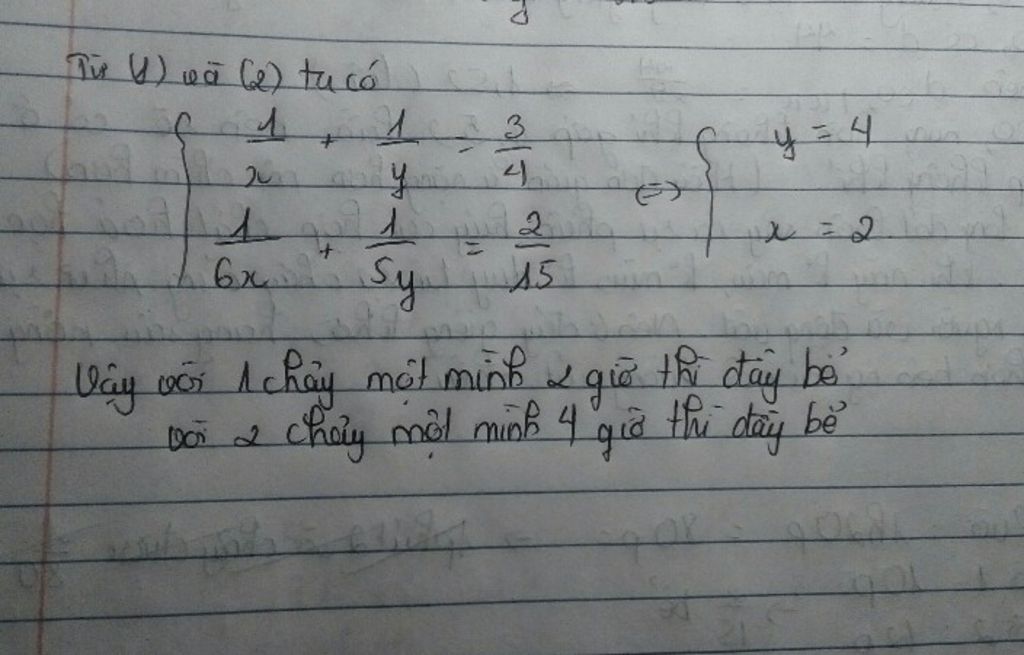 Từ (1) và (2) ta có
1/x + 1/y = 3/4 <=> y = 4
1/6x + 1/5y = 2/15 x = 2
Vậy vòi 1 chảy một mình 2 giờ thì đầy bể
vòi 2 chảy một mình 4 giờ thì đầy bể